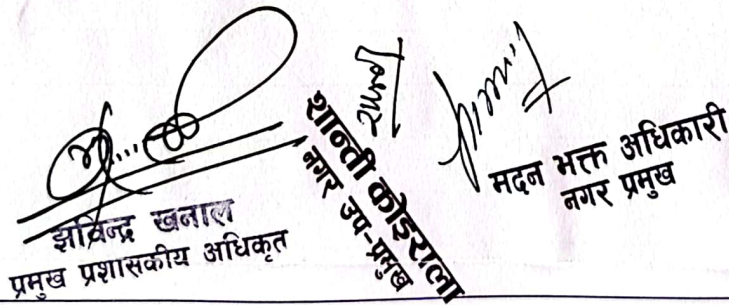 झविन्द्र खनाल
प्रमुख प्रशासकीय अधिकृत
शान्ती कोइराला
नगर उप-प्रमुख
मदन भक्त अधिकारी
नगर प्रमुख